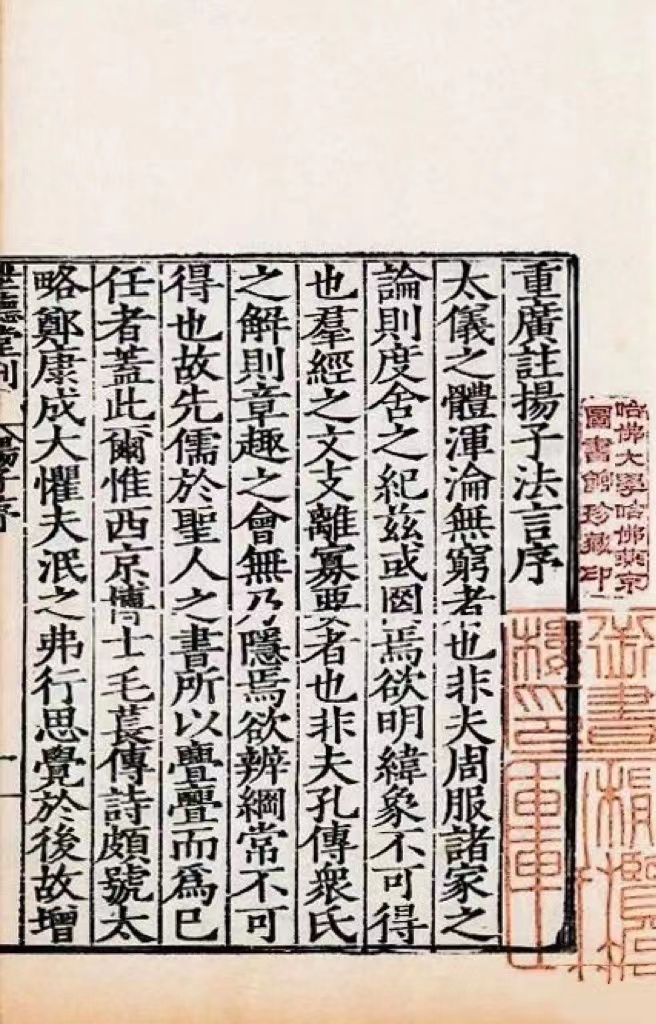 重廣註揚子法言序
太儀之體渾淪無窮者也非夫周服諸家之
論則度舍之紀茲或罔焉欲明緯象不可得
也羣經之文支離寡要者也非夫孔傳衆氏
之解則章趣之會無乃隱焉欲辨綱常不可
得也故先儒於聖人之書所以亹亹而為己
任者蓋此爾惟西京博士毛萇傳詩頗號太
略鄭康成大懼夫泯之弗行思覺於後故增
世德堂刊
揚子序
一
哈佛大學哈佛燕京
圖書館珍藏印